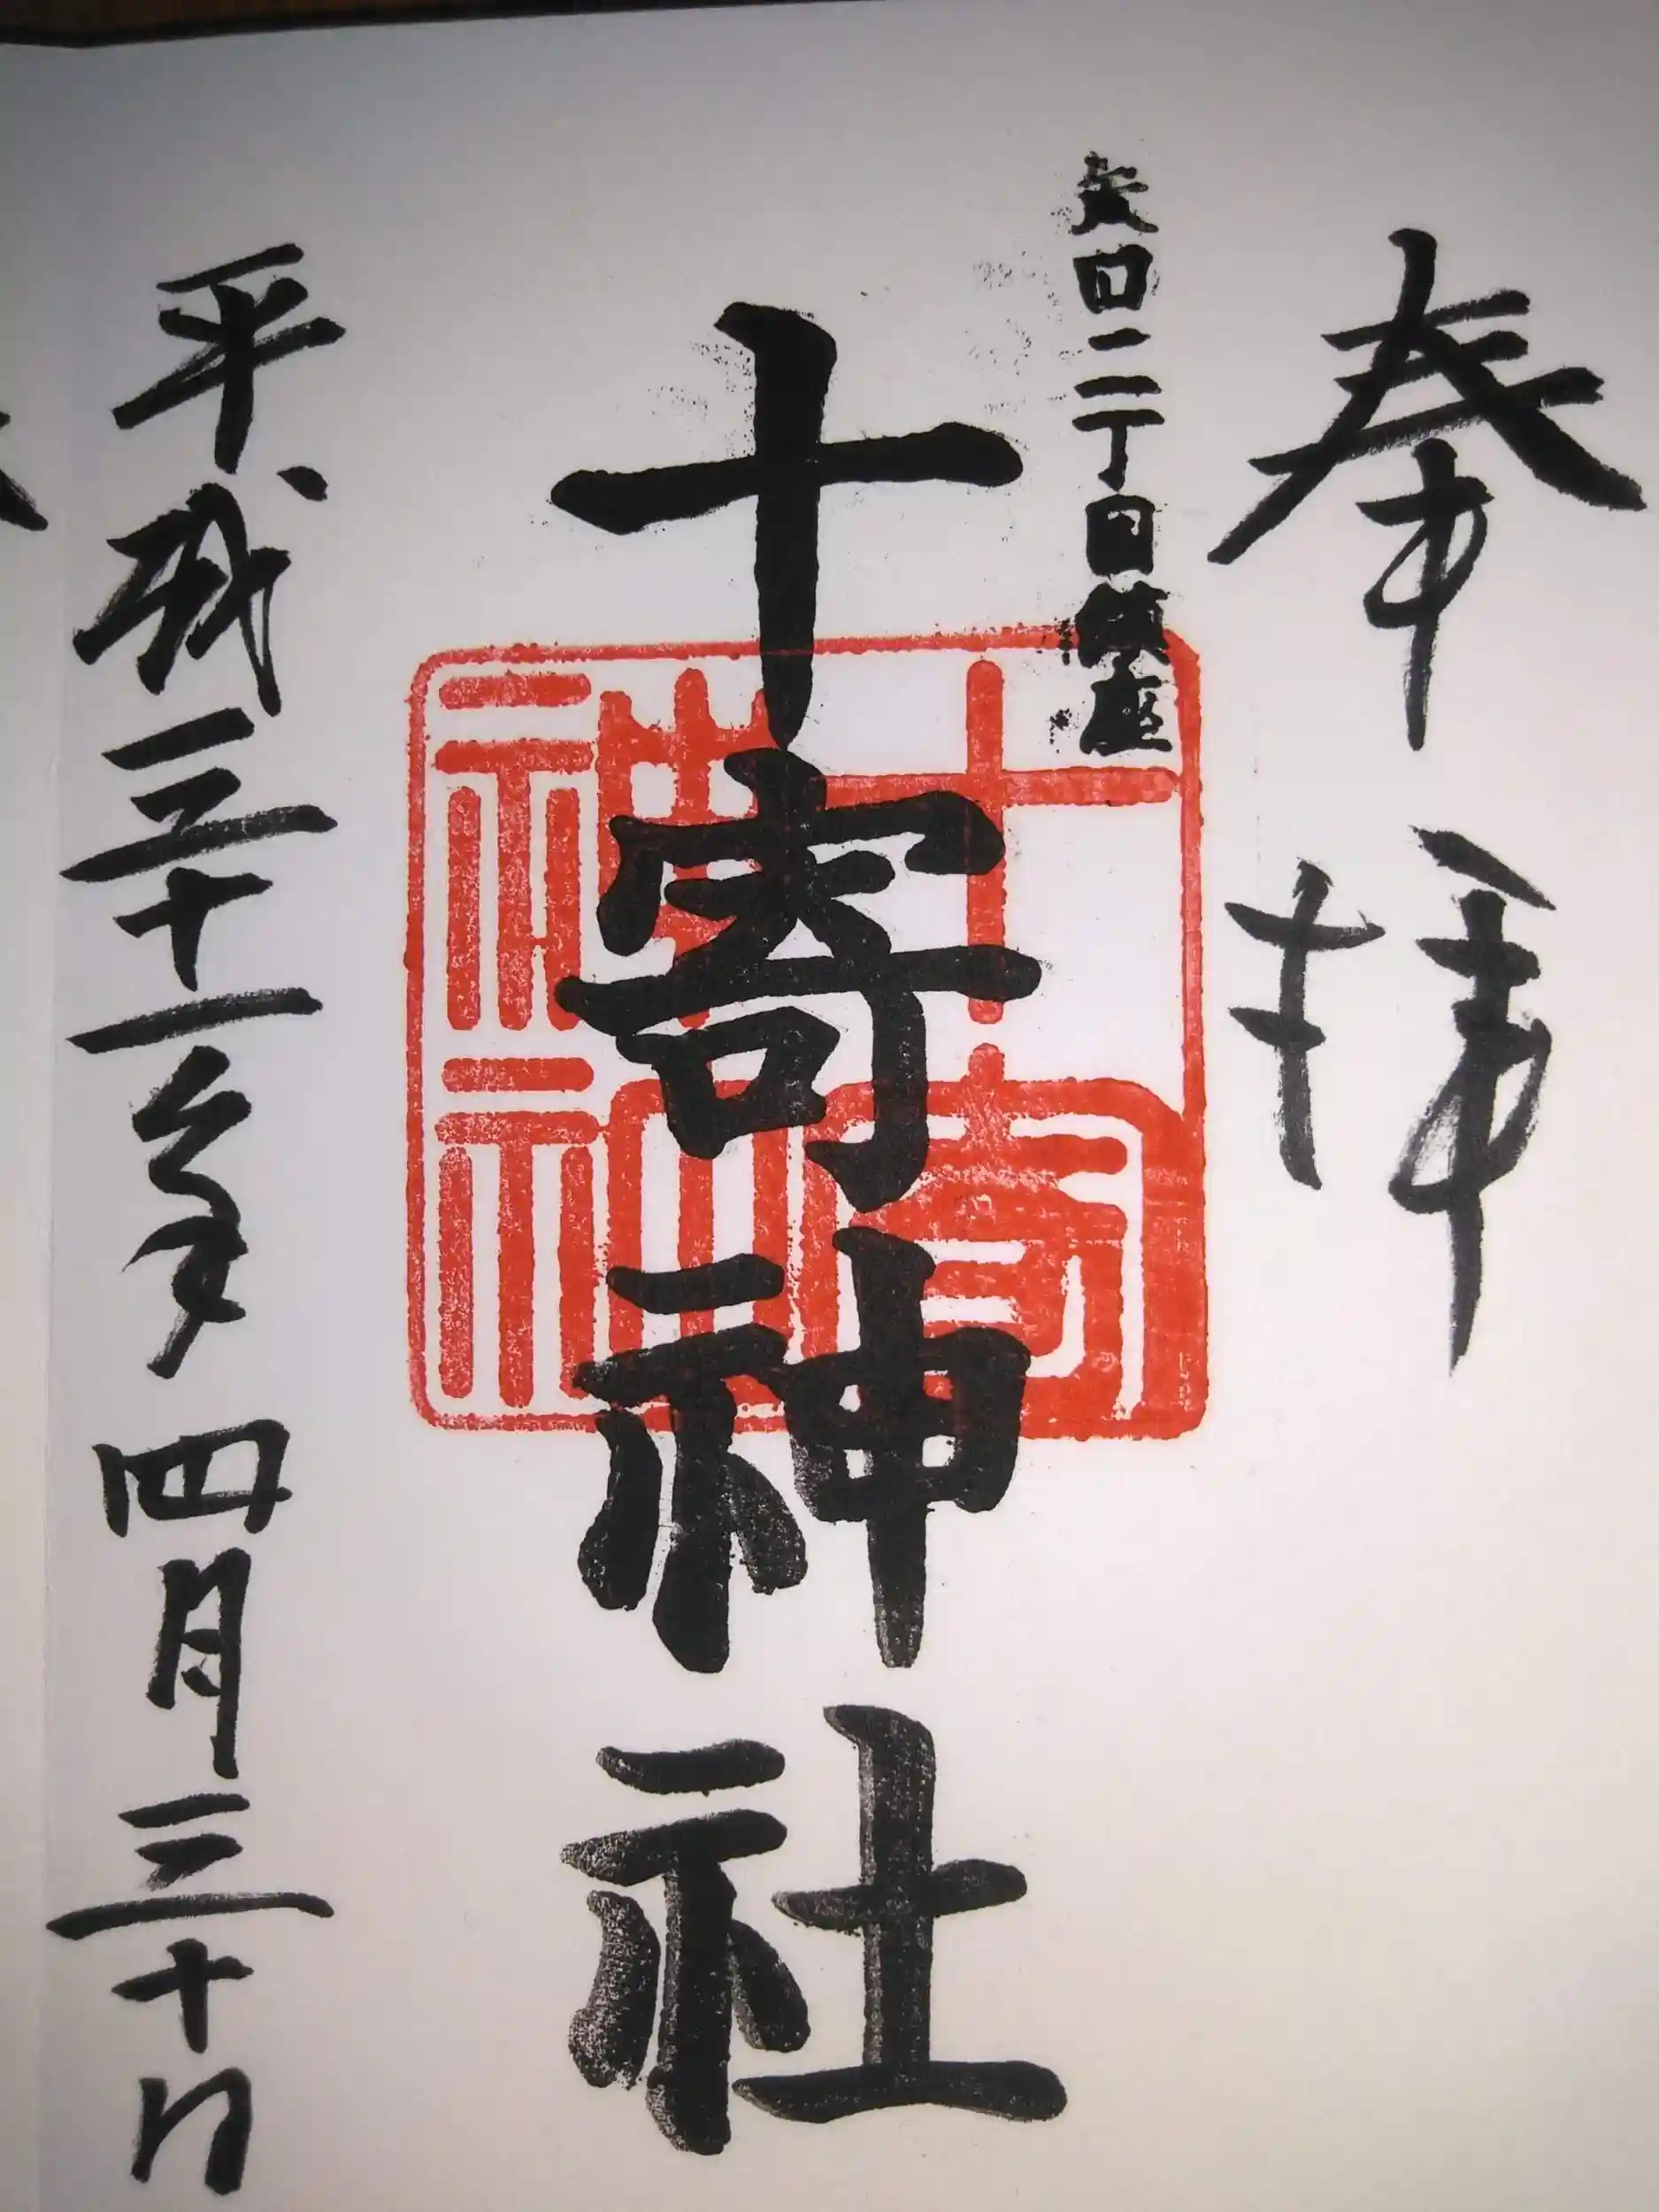 奉拝
矢口二丁目鎮座
十寄神社
平成三十一年四月三十日